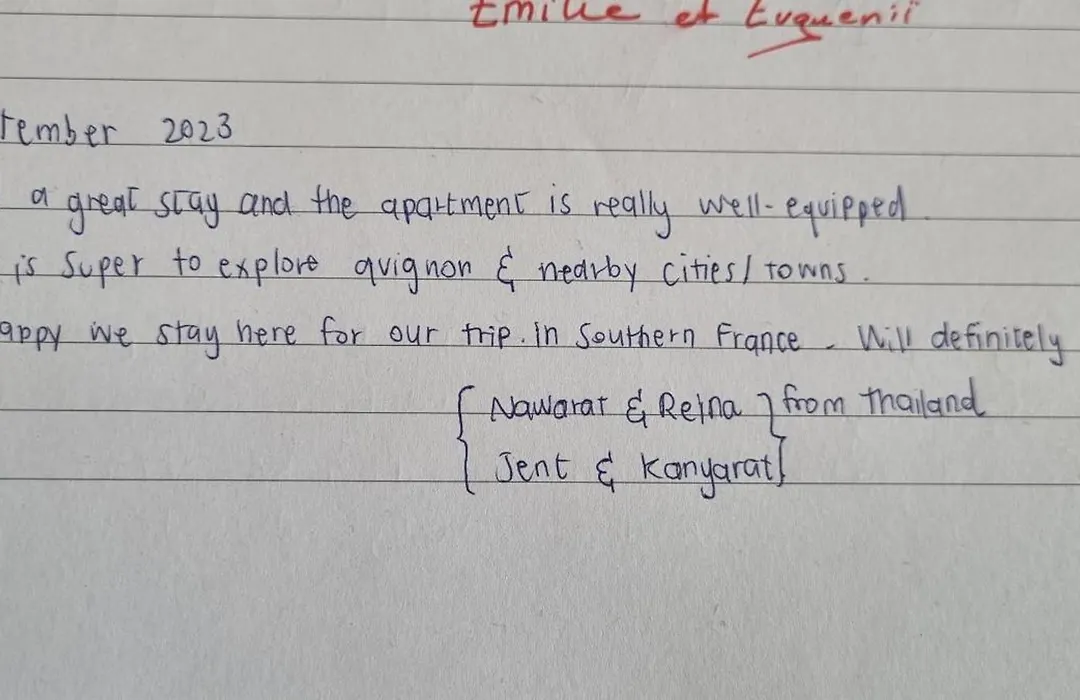 Emilie et Euguenii
tember 2023
a great stay and the apartment is really well-equipped.
is super to explore avignon & nearby cities/towns.
appy we stay here for our trip. in Southern France. Will definitely
{ Nawarat & Rejna } from Thailand
{ Jent & Kanyarat }